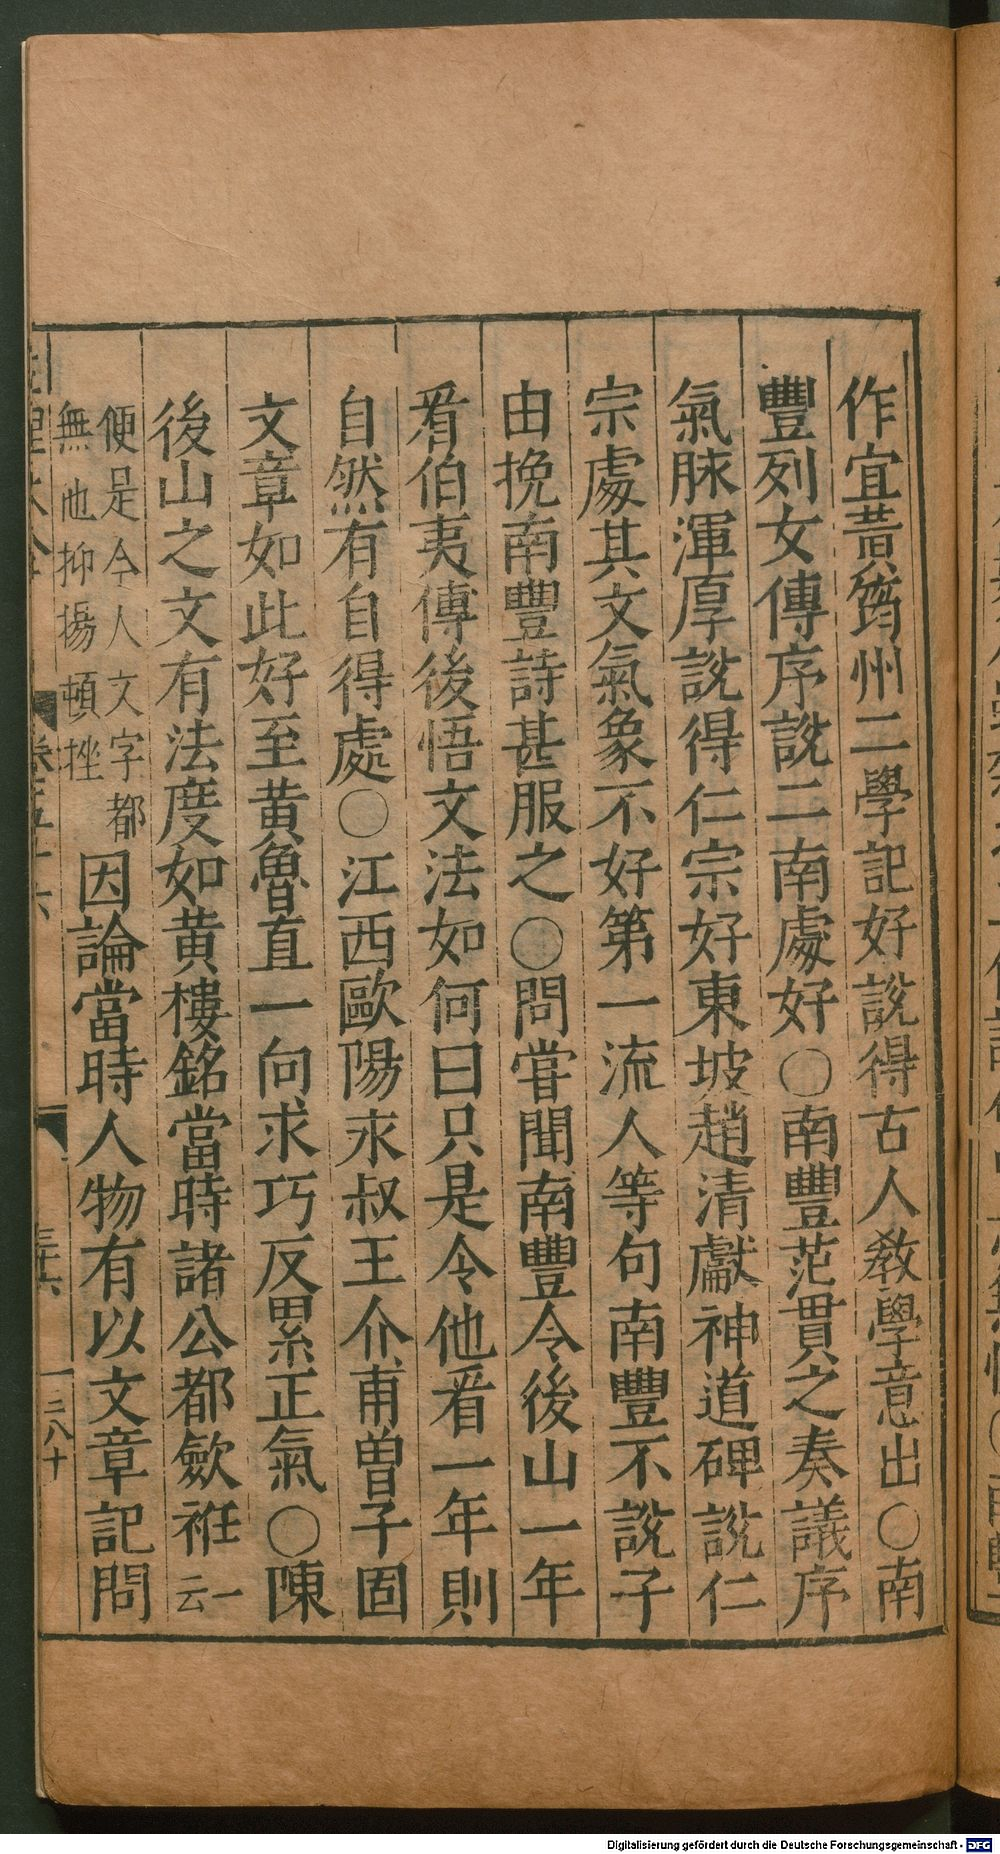 作宜黃筠州二學記好說得古人教學意出○南
豐列女傳序說二南處好○南豐范貫之奏議序
氣脉渾厚說得仁宗好東坡趙清獻神道碑說仁
宗處其文氣象不好第一流人等句南豐不說子
由挽南豐詩甚服之○問嘗聞南豐令後山一年
看伯夷傳後悟文法如何曰只是令他看一年則
自然有自得處○江西歐陽永叔王介甫曾子固
文章如此好至黃魯直一向求巧反累正氣○陳
後山之文有法度如黃樓銘當時諸公都歛衽一云
便是今人文字都
無他抑揚頓挫
因論當時人物有以文章記問
卷五十六
三十六
一三八十
Digitalisierung gefördert durch die Deutsche Forschungsgemeinschaft - DFG